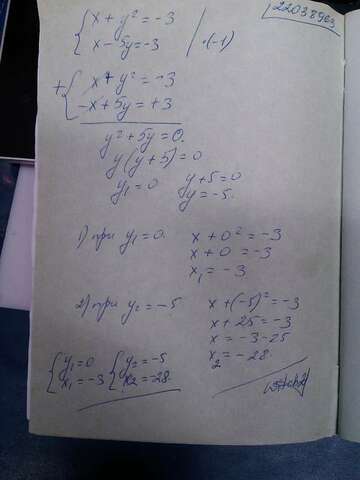 22038963
{ x + y² = -3
x - 5y = -3 | ·(-1)
+ { x + y² = -3
-x + 5y = +3
y² + 5y = 0.
y(y + 5) = 0
y₁ = 0 y + 5 = 0
y = -5.
1) при y₁ = 0. x + 0² = -3
x + 0 = -3
x₁ = -3
2) при y₂ = -5 x + (-5)² = -3
x + 25 = -3
x = -3 - 25
x₂ = -28.
{ y₁ = 0 { y₂ = -5
x₁ = -3 x₂ = -28.